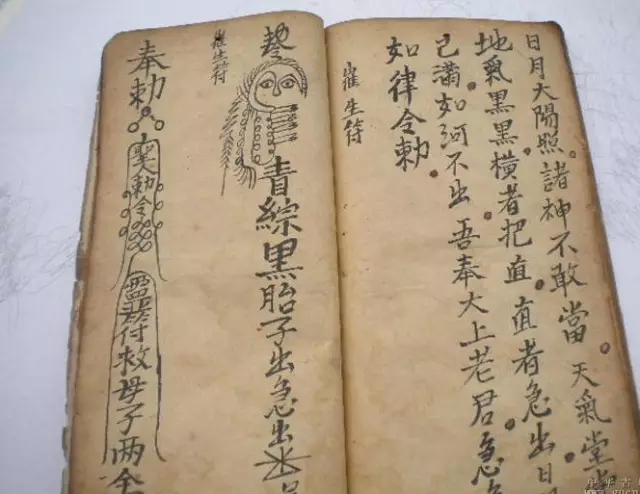 日月大陽照諸神不敢當天氣堂
地氣黑黑橫者把直直者急出日
已滿如河不出吾奉大上老君急急
如律令勅
崔生符
青綜黑胎子出急出
崔生符
奉勅
勅令
付救母子两全